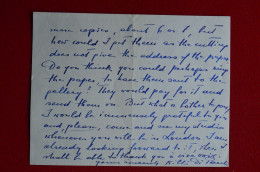 more copies, about 6 or 8, but
how could I get them as the cutting
does not give the address of the paper.
Do you think you could perhaps ring
the paper, to have them sent to the
gallery? They would pay for it and
send them on. But what a bother
I would be immensely grateful to you
and please, come and see my studio
whenever you will be in London. I am
already looking forward to it, then I
shall be able to thank you
yours sincerely